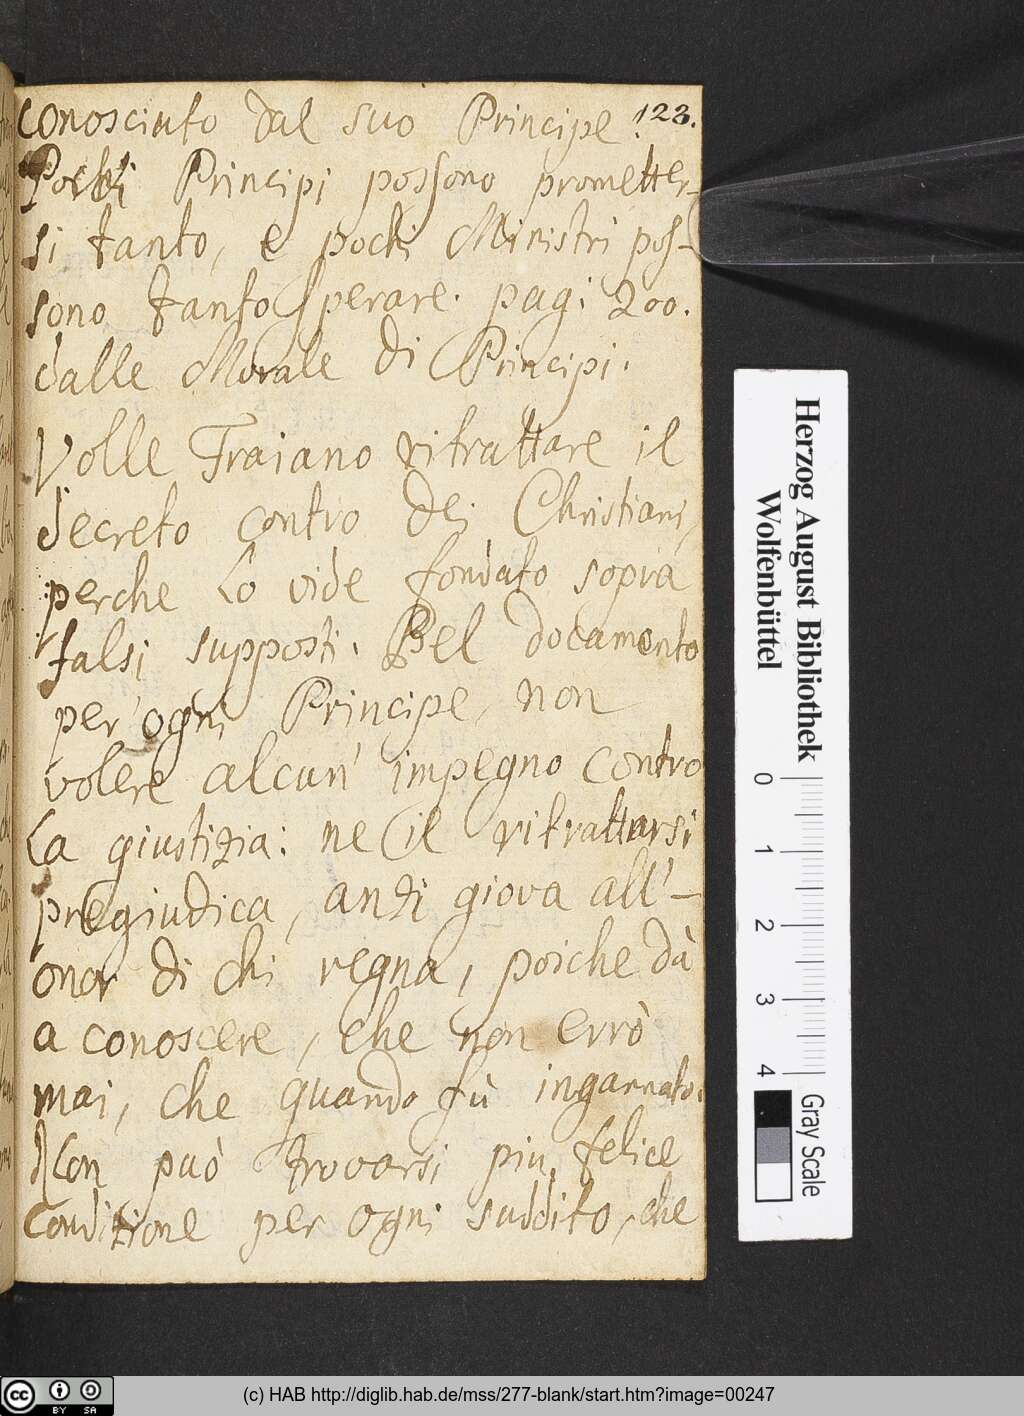 conosciuto dal suo Principe. 123.
Pochi Principi possono prometter-
si tanto, e pochi Ministri pos-
sono tanto sperare. pagi 200.
dalle Morale di Principi.
Volle Traiano ritrattare il
Decreto contro dei Christiani,
perche Lo vide fondato sopra
falsi supposti. Bel documento
per ogni Principe, non
volere alcun' impegno contro
La giustizia: ne il ritrattarsi
pregiudica, anzi giova all'-
onor di chi regna, poiche dà
a conoscere, che non errò
mai, che quando fù ingannato.
Non può trovarsi piu felice
condizione per ogni suddito, che
Herzog August Bibliothek
Wolfenbüttel
0 1 2 3 4
Gray Scale
cc BY SA
(c) HAB http://diglib.hab.de/mss/277-blank/start.htm?image=00247